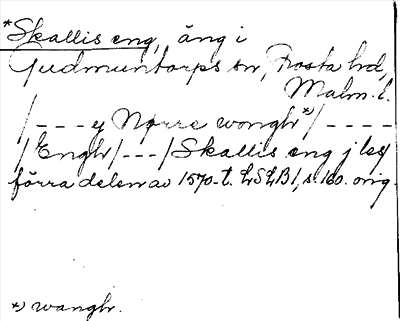 *Skallis eng, äng i
Gudmuntorps sn, Frosta hd,
Malm. l.
/---- ej Nørre wonghr*)/----
/Enghr/---/Skallis eng j les/
förra delen av 1570-t. LSLB1, s. 160. orig.
*) wanghr.